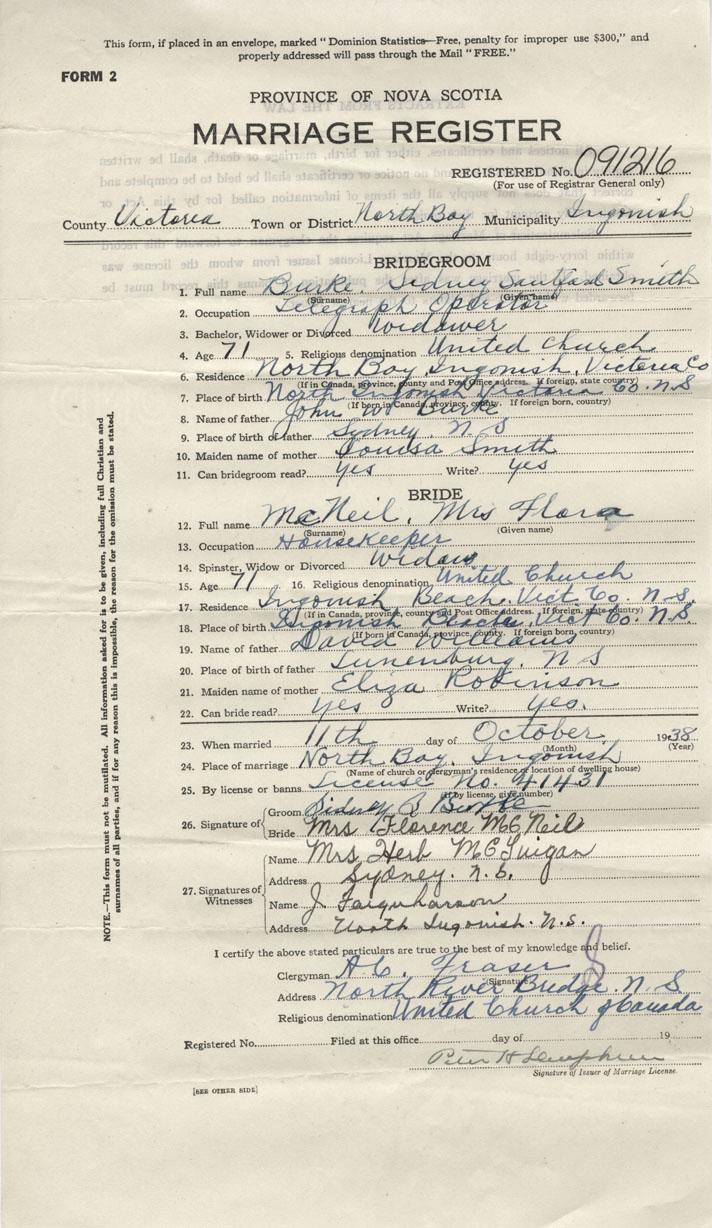 This form, if placed in an envelope, marked "Dominion Statistics—Free, penalty for improper use $300," and
properly addressed will pass through the Mail "FREE."
FORM 2
PROVINCE OF NOVA SCOTIA
MARRIAGE REGISTER
REGISTERED No. 091216
(For use of Registrar General only)
County Victoria Town or District North Bay Municipality Ingonish
BRIDEGROOM
1. Full name Burke, Sidney Smith
(Surname) (Given name)
2. Occupation Telegraph Operator
3. Bachelor, Widower or Divorced Widower
4. Age 71 5. Religious denomination United Church
6. Residence North Bay, Ingonish, Victoria Co
(If in Canada, province, county and Post Office address. If foreign, state country)
7. Place of birth North Ingonish Victoria Co. N.S
(If born in Canada, province, county. If foreign born, country)
8. Name of father John W Burke
9. Place of birth of father Sydney, N.S
10. Maiden name of mother Louisa Smith
11. Can bridegroom read? yes Write? yes
BRIDE
12. Full name McNeil, Mrs Flora
(Surname) (Given name)
13. Occupation Housekeeper
14. Spinster, Widow or Divorced Widow
15. Age 71 16. Religious denomination United Church
17. Residence Ingonish Beach, Vict. Co. N.S.
(If in Canada, province, county and Post Office address. If foreign, state country)
18. Place of birth Ingonish Beach, Vict Co. N.S.
(If born in Canada, province, county. If foreign born, country)
19. Name of father David Williams
20. Place of birth of father Lunenburg, N S
21. Maiden name of mother Eliza Robinson
22. Can bride read? yes Write? yes.
23. When married 11th day of October, 1938
(Month) (Year)
24. Place of marriage North Bay, Ingonish
(Name of church or clergyman's residence or location of dwelling house)
25. By license or banns License No. 41431
(If by license, give number)
26. Signature of
Groom Sidney S Burke
Bride Mrs Florence McNeil
27. Signatures of Witnesses
Name Mrs Herb McGuigan
Address Sydney. N.S.
Name J. Farquharson
Address North Ingonish. N.S.
I certify the above stated particulars are true to the best of my knowledge and belief.
Clergyman A C. Fraser
(Signature)
Address North River Bridge. N. S
Religious denomination United Church of Canada
Registered No. Filed at this office day of 19
Peter H
Signature of Issuer of Marriage License.
[SEE OTHER SIDE]
NOTE.—This form must not be mutilated. All information asked for is to be given, including full Christian and
surnames of all parties, and if for any reason this is impossible, the reason for the omission must be stated.